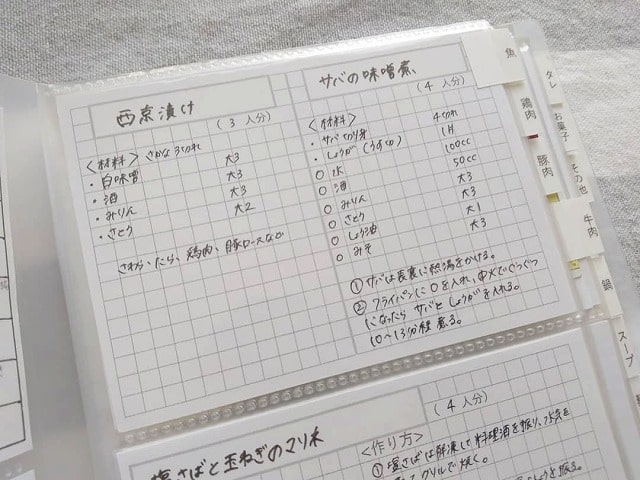 西京漬け
(3人分)
<材料> さかな3切れ
・白味噌 大3
・酒 大3
・みりん 大3
・さとう 大2
さわら、たら、鶏肉、豚ロースなど
サバの味噌煮
(4人分)
<材料>
・サバ切り身 4切れ
・しょうが(うすぎり) 1片
○ 水 100cc
○ 酒 50cc
○ みりん 大3
○ さとう 大3
○ しょう油 大1
○ みそ 大3
① サバは表裏に熱湯をかける。
② フライパンに○を入れ、中火でぐつぐつ
になったら サバと しょうがを入れる。
10〜13分程 煮る。
塩さばと玉ねぎのマリネ
(4人分)
<作り方>
①塩さばは解凍して料理酒を振り、水気を
グリルで焼く。
魚
鶏肉
豚肉
牛肉
鍋
スープ
タレ
お菓子
その他